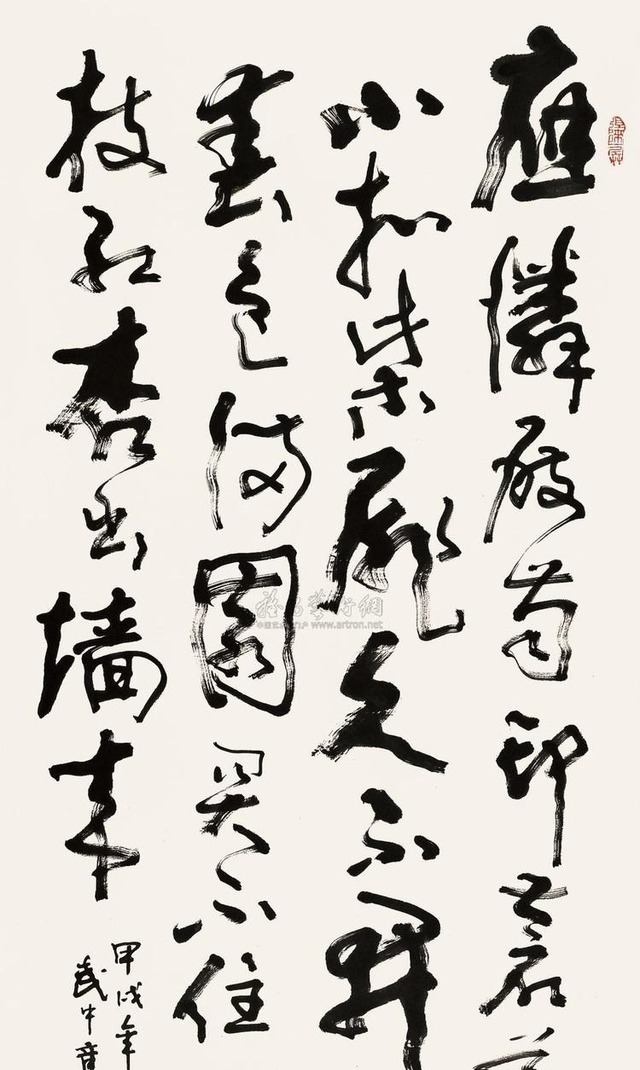 應憐屐齒印蒼
小扣柴扉久不開
春色滿園關不住
枝紅杏出墙來
甲戌年
武中奇
www.artron.net